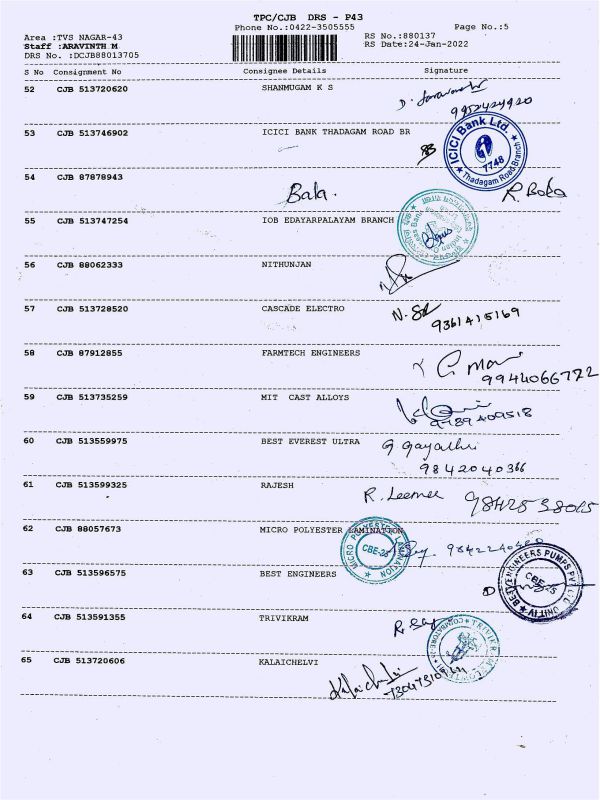 TPC/CJB DRS - P43
Phone No.:0422-3505555 Page No.:5
Area :TVS NAGAR-43 RS No.:880137
Staff :ARAVINTH M RS Date:24-Jan-2022
DRS No. :DCJB88013705
S No Consignment No Consignee Details Signature
52 CJB 513720620 SHANMUGAM K S
53 CJB 513746902 ICICI BANK THADAGAM ROAD BR
ICICI Bank Ltd. 7748 Thadagam Road Branch
54 CJB 87878943 Bala. R. Bala
55 CJB 513747254 IOB EDAYARPALAYAM BRANCH
56 CJB 88062333 NITHUNJAN
57 CJB 513728520 CASCADE ELECTRO
9361415169
58 CJB 87912855 FARMTECH ENGINEERS
9944066772
59 CJB 513735259 MIT CAST ALLOYS
9789409518
60 CJB 513559975 BEST EVEREST ULTRA G Gayathri
9842040366
61 CJB 513599325 RAJESH R. Leemee
62 CJB 88057673 MICRO POLYESTER LAMINATION
MICRO POLYESTER LAMINATION CBE-25
63 CJB 513596575 BEST ENGINEERS
BEST ENGINEERS PUMPS PVT LTD UNIT IV CBE-25
64 CJB 513591355 TRIVIKRAM
65 CJB 513720606 KALAICHELVI